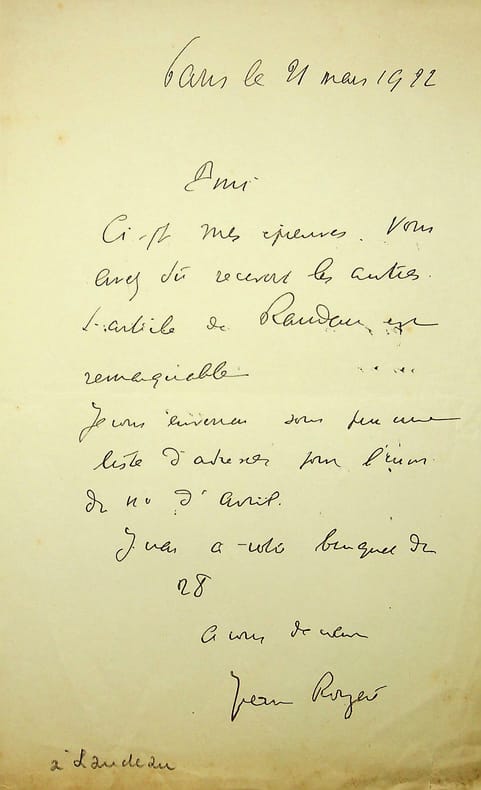 Paris le 21 mars 1922
Ami
Ci-jt mes épreuves. Vous
avez dû recevoir les autres.
L'article de Randau est
remarquable
Je vous enverrai sous peu une
liste d'adresses pour l'envoi
du no d'avril.
J'irai a votre banquet du
28
a vous de cœur
Jean Royère
à Landeau